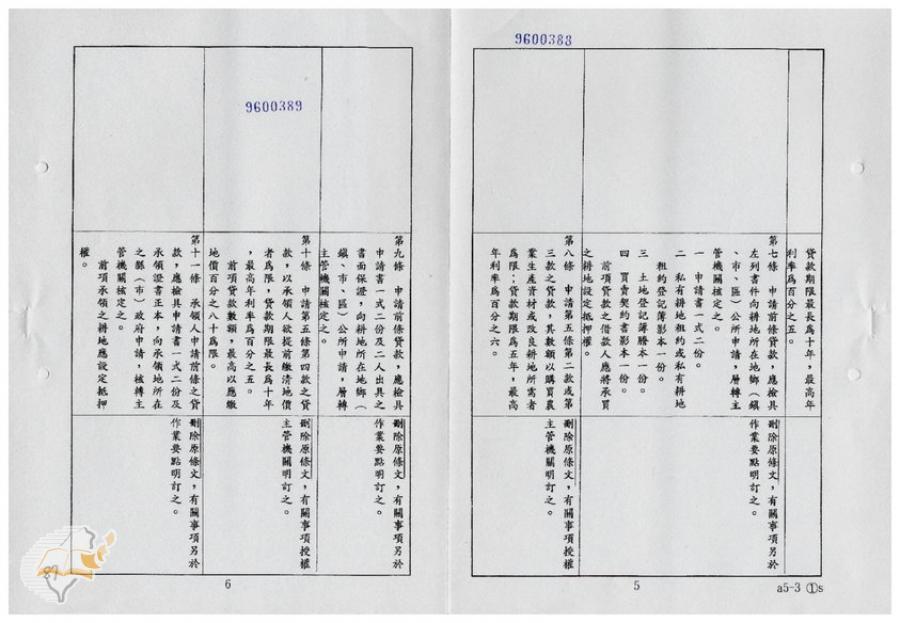 9600388
貸款期限最長為十年，最高年
利率為百分之五。
第七條　申請前條貸款，應檢具
左列書件向耕地所在地鄉（鎮
、市、區）公所申請，層轉主
管機關核定之。
一　申請書一式二份。
二　私有耕地租約或私有耕地
租約登記簿影本一份。
三　土地登記簿謄本一份。
四　買賣契約書影本一份。
前項貸款之借款人應將承買
之耕地設定抵押權。
刪除原條文，有關事項另於
作業要點明訂之。
第八條　申請第五條第二款或第
三款之貸款，其數額以購買農
業生產資材或改良耕地所需者
為限；貸款期限為五年，最高
年利率為百分之六。
刪除原條文，有關事項授權
主管機關明訂之。
5
a5-3 ①s
9600389
第九條　申請前條貸款，應檢具
申請書一式二份及二人出具之
書面保證，向耕地所在地鄉（
鎮、市、區）公所申請，層轉
主管機關核定之。
刪除原條文，有關事項另於
作業要點明訂之。
第十條　申請第五條第四款之貸
款，以承領人欲提前繳清地價
者為限，貸款期限最長為十年
，最高年利率為百分之五。
前項貸款數額，最高以應繳
地價百分之八十為限。
刪除原條文，有關事項授權
主管機關明訂之。
第十一條　承領人申請前條之貸
款，應檢具申請書一式二份及
承領證書正本，向承領地所在
之縣（市）政府申請，核轉主
管機關核定之。
前項承領之耕地應設定抵押
權。
刪除原條文，有關事項另於
作業要點明訂之。
6